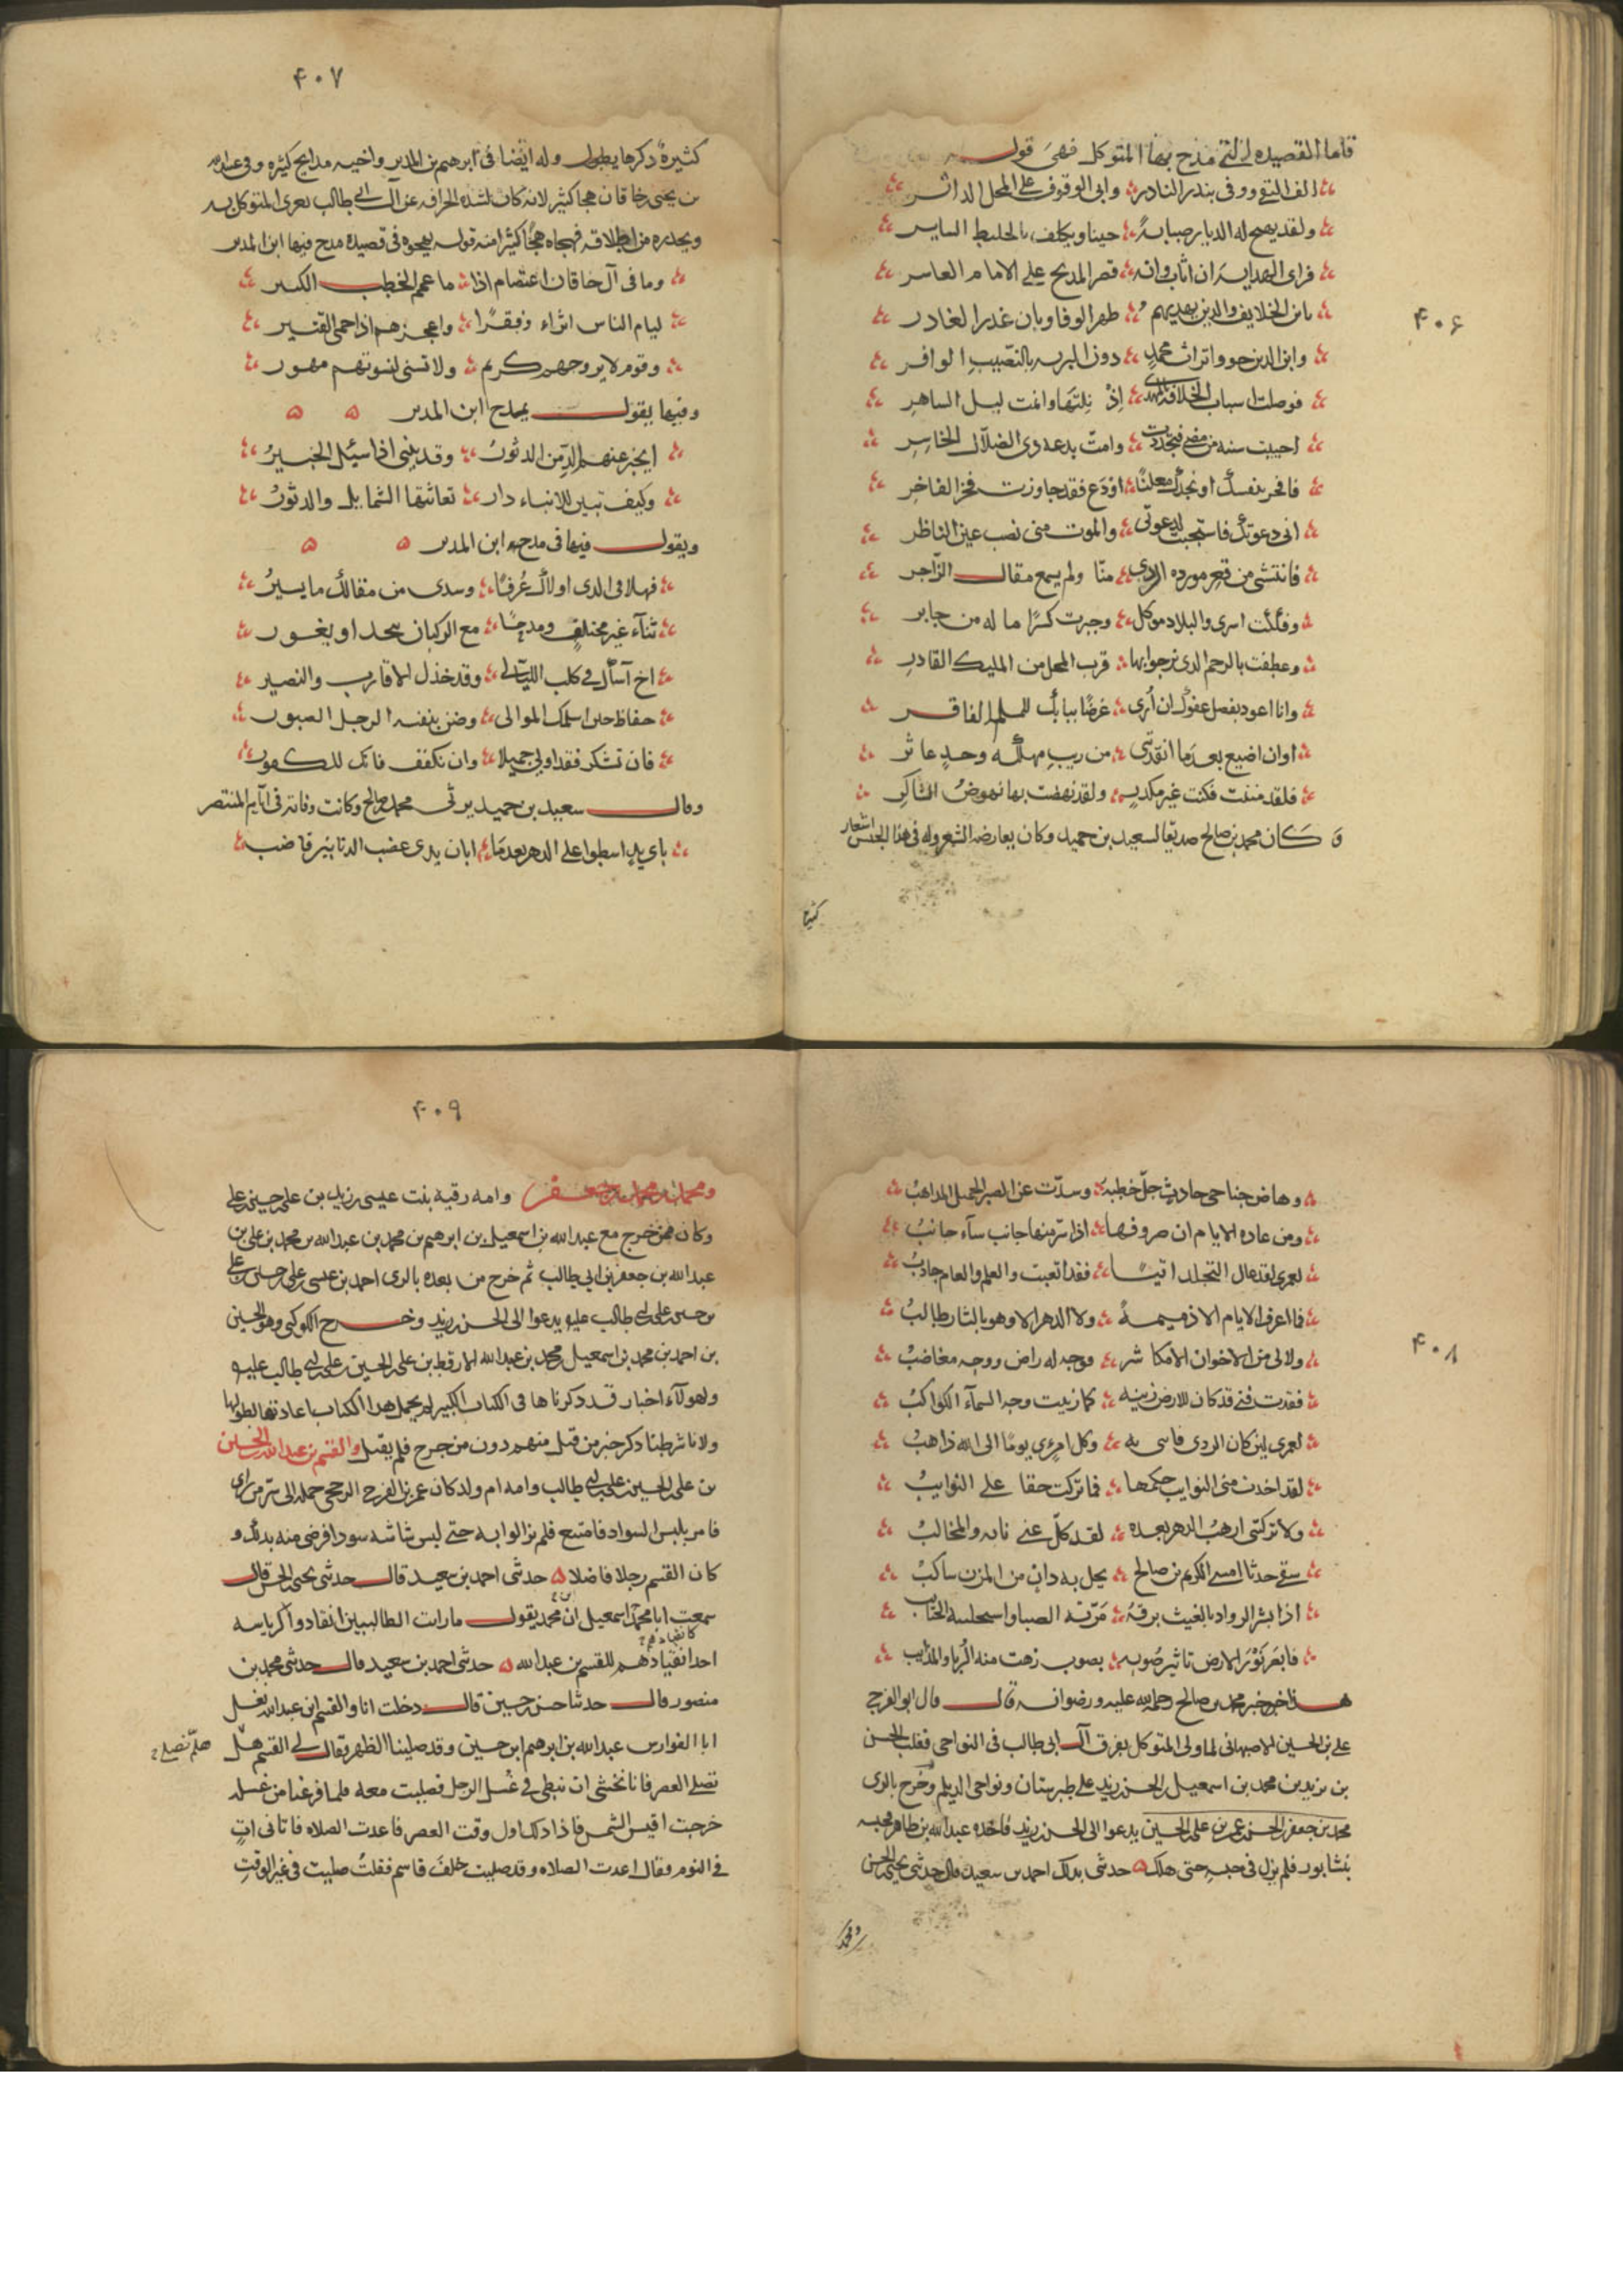 ۴۰۶
فاما القصيده التي مدح بها المتوكل فهي قوله
الف التقى ووفى بنذر الناذر وابى الوقوف على المحل الداثر
ولقد يهيج له الديار صبابةً حينا ويكلف بالخليط الساير
فراى الهدايه ان اناب وانه قصر المديح على الامام العاشر
يابن الخلايف والذين بهديهم ظهر الوفا وبان غدر الغادر
وابن الدين حووا تراث محمدٍ دون البريه بالنصيبِ الوافر
فوصلت اسباب الخلافه بالهدى اِذْ نِلتَها وانمت ليل الساهرِ
احييت سنه من مضى فتجددت وامتّ بدعه ذوي الضلّال الخاسِرِ
فافخر بنفسك او بجدك معلنًا اوْ دَع فقد جاوزت فخر الفاخرِ
اني دعوتك فاستجبت لدعوتي والموت مني نصب عين الناظر
فانتشتني من قعرِ مورده الردي منّا ولم يسمع مقال الزّاجر
وفككت اسرى والبلاد موكل وجبرت كسرًا ما له من جابر
وعطفت بالرحم الذي نرجوا بها قرب المحل من المليك القادر
وانا اعود بفضل عفوك ان اُرى غرضًا ببابك للملم الفاقر
او ان اضيع بعد مَا انقذتني من ريبِ مهلكه وجدٍ عاثر
فلقد مننت فكنت غير مكدرٍ ولقد نهضت بها نهوضُ الشاكِرِ
وَ كان محمد بن صالح صديقا لسعيد بن حميد وكان يعارضه الشعر وله في هذا الجنس اشعار
كثيرة
۴۰۷
كثيرةٌ ذكرها يطول وله ايضا في ابرهيم بن المدبر واخيه مدايح كثيره وفي عبيد الله
بن يحيى بن خاقان هجا كثير لانه كان لشدة انحرافه عن ال ابي طالب يغري المتوكل به
ويحذره من اطلاقه فهجاه هجًا كثيرًا منه قوله يهجوه في قصيده مدح فيها ابن المدبر
وما في آل خاقان اعتصام اذا ما عمم الخطب الكبير
ليام الناس اثراء وفقرًا واعجزهم اذا حمى القتير
وقوم لا يروجهم كريم ولا تسنى لنسوتهم مهور
وفيها يقول يمدح ابن المدبر
ايخبر عنهم الدِّمن الدثورُ وقد ينبي اذا سُئِل الخبيرُ
وكيف تبين الانباء دار تعاقبها الشمايل والدثورُ
ويقول فيها في مدحه ابن المدبر
فهلا في الذي اولاك عُرفًا وسدى من مقالك ما يسيرُ
ثنآء غير مختلفٍ ومدحًا مع الركبان ينجد او يغور
اخ آساك في كلب الليالي وقد خذل الاقارب والنصير
حفاظا حين اسلمك الموالي وضن بنفسه الرجل الصبور
فان تشكر فقد اولى جميلا وان تكفف فانك للكفور
وقال سعيد بن حميد يرثي محمد بن صالح وكانت وفاته في ايام المنتصر
باي يدٍ اسطوا على الدهر بعد مَا ابان يدي عضب الذنابين قاضب
۴۰۸
وهاض جناحي حادثٍ جلّ خطبهُ وسدّت عن الصبر الجميل المذاهبُ
ومن عاده الايام ان صروفها اذا سرّ منها جانب سآء جانبُ
لعمري لقد عال التجلد اتينا فقد اتعبت والعلم والعام جادبُ
فما اعرف الايام الا ذميمةً ولا الدهر الا وهو بالثار طالبُ
ولا لي من الاخوان الا مكاشر فوجه له راضٍ ووجه مغاضبُ
فقدت فتى قد كان للارض زينه كما زينت وجه السمآء الكواكبُ
لعمري لئن كان الردى فاتني به وكل امرئٍ يومًا الى الله ذاهبُ
لقد اخذت مني النوايب حكمها فما تركت حقا على النوايبُ
ولا تركتني ارهبُ الدهر بعده لقد كلّ عني نابه والمخالبُ
سقى جدثا امسى الكريم بن صالح يحل به دانٍ من المزن ساكبُ
اذا بشر الرواد بالغيث برقهُ مَرَته الصبا واستحلبته الجنايب
فابعَر نَوْرَ الارض تاثير صَوبهِ بصوب زهت منه الرُبا والمذانِب
هذا اخر خبر محمد بن صالح رحمة الله عليه ورضوانه قال قال ابو الفرج
علي بن الحسين الاصبهاني لما ولي المتوكل تفرق آل ابي طالب في النواحي فغلب الحسن
بن زيد بن محمد بن اسمعيل بن الحسن بن زيد على طبرستان ونواحي الديلم وخرج بالري
محمد بن جعفر بن الحسن بن عمر بن علي بن الحسين يدعوا الى الحسن بن زيد فاخذه عبد الله بن طاهر فحبسه
بنسابور فلم يزل في حبسهِ حتى هلك حدثني بذلك احمد بن سعيد قال حدثني يحيى بن الحسن
ومحمد
۴۰۹
ومحمد بن محمد بن جعفر وامه رقيه بنت عيسى بن زيد بن علي بن حسين بن علي
وكان ممن خرج مع عبد الله بن اسمعيل بن ابرهيم بن محمد بن عبد الله بن محمد بن علي بن
عبد الله بن جعفر بن ابي طالب ثم خرج من بعده بالري احمد بن عيسى بن علي بن حسين بن علي
بن حسين بن علي بن ابي طالب عليه يدعوا الى الحسن بن زيد وخرج الكوكبي وهو الحسين
بن احمد بن محمد بن اسمعيل بن محمد بن عبد الله الارقط بن علي بن الحسين بن علي بن ابي طالب عليه
ولهولآء اخبار قد ذكرناها في الكتاب الكبير لم يحمل هذا الكتاب اعادتها لطولها
ولانا شرطنا ذكر خبر من قتل منهم دون من خرج فلم يقتل والقسم بن عبد الله بن الحسين
بن علي بن الحسين بن علي بن ابي طالب وامه ام ولد كان عمر بن الفرج الرخجي حمله الى سر من راى
فامر بلبس السواد فامتنع فلم يزالوا به حتى لبس شاشه سودا فرضي منه بذلك و
كان القسم رجلا فاضلا حدثني احمد بن سعيد قال حدثني يحيى بن الحسن قال
سمعت ابا محمد اسمعيل بن محمد يقول ما رايت الطالبيين انقادوا لرياسه
احد انقيادهم للقسم بن عبد الله حدثني احمد بن سعيد قال حدثني محمد بن
كانقيادهم
منصور قال حدثنا حسن بن حسين قال دخلت انا والقسم ابن عبد الله نغسل
ابا الفوارس عبد الله بن ابرهيم ابن حسين وقد صلينا الظهر فقال لي القسم هل
هلّم نصلي
نصلي العصر فانا نخشى ان نبطي في غُسل الرجل فصليت معه فلما فرغنا من غسله
خرجت اقيس الشمس فاذا ذلك اول وقت العصر فاعدت الصلاه فاتاني اتٍ
في النوم وقال اعدت الصلاه وقد صليت خلف قاسم فقلتُ صليت في غير الوقت